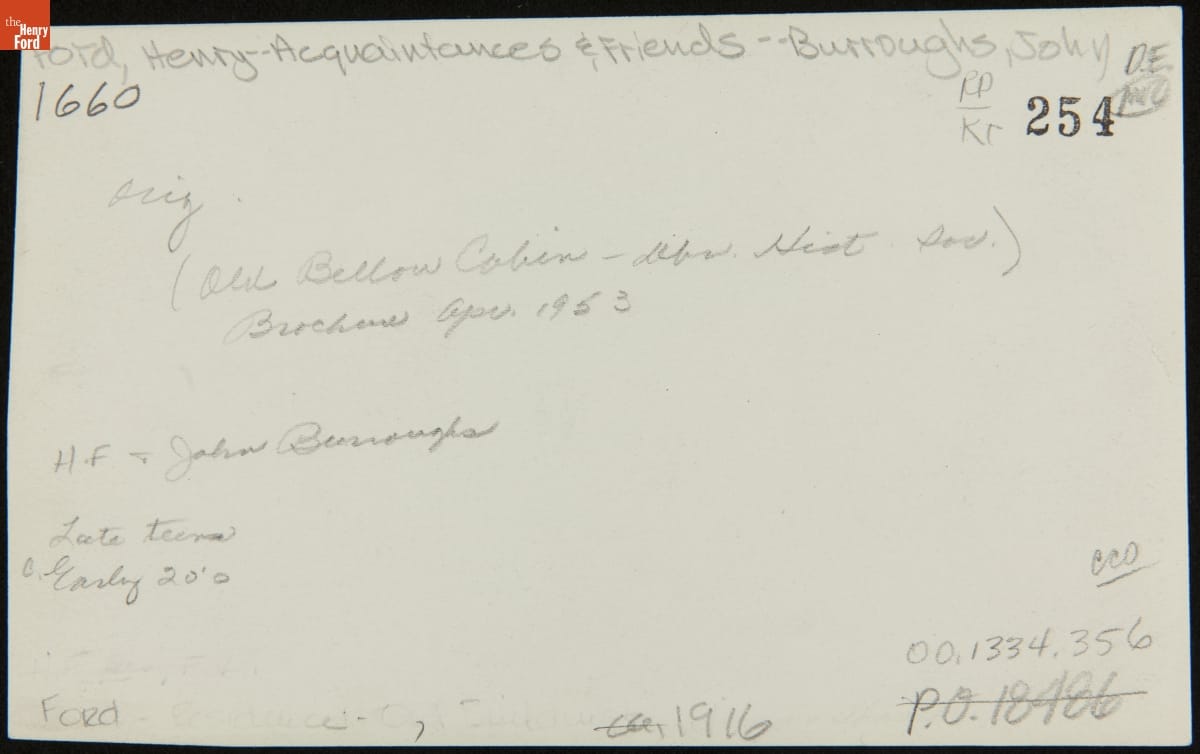 the Henry Ford
Ford, Henry--Acquaintances & Friends--Burroughs, John
D.E.
1660
PP
Kr
254
Orig.
(Old Bellow Cabin - Dbn. Hist. Soc.)
Brochure Apr. 1953
H.F + John Burroughs
Late teens
C. Early 20's
CCO
00.1334.356
Ford
, ca. 1916
P.O. 18486